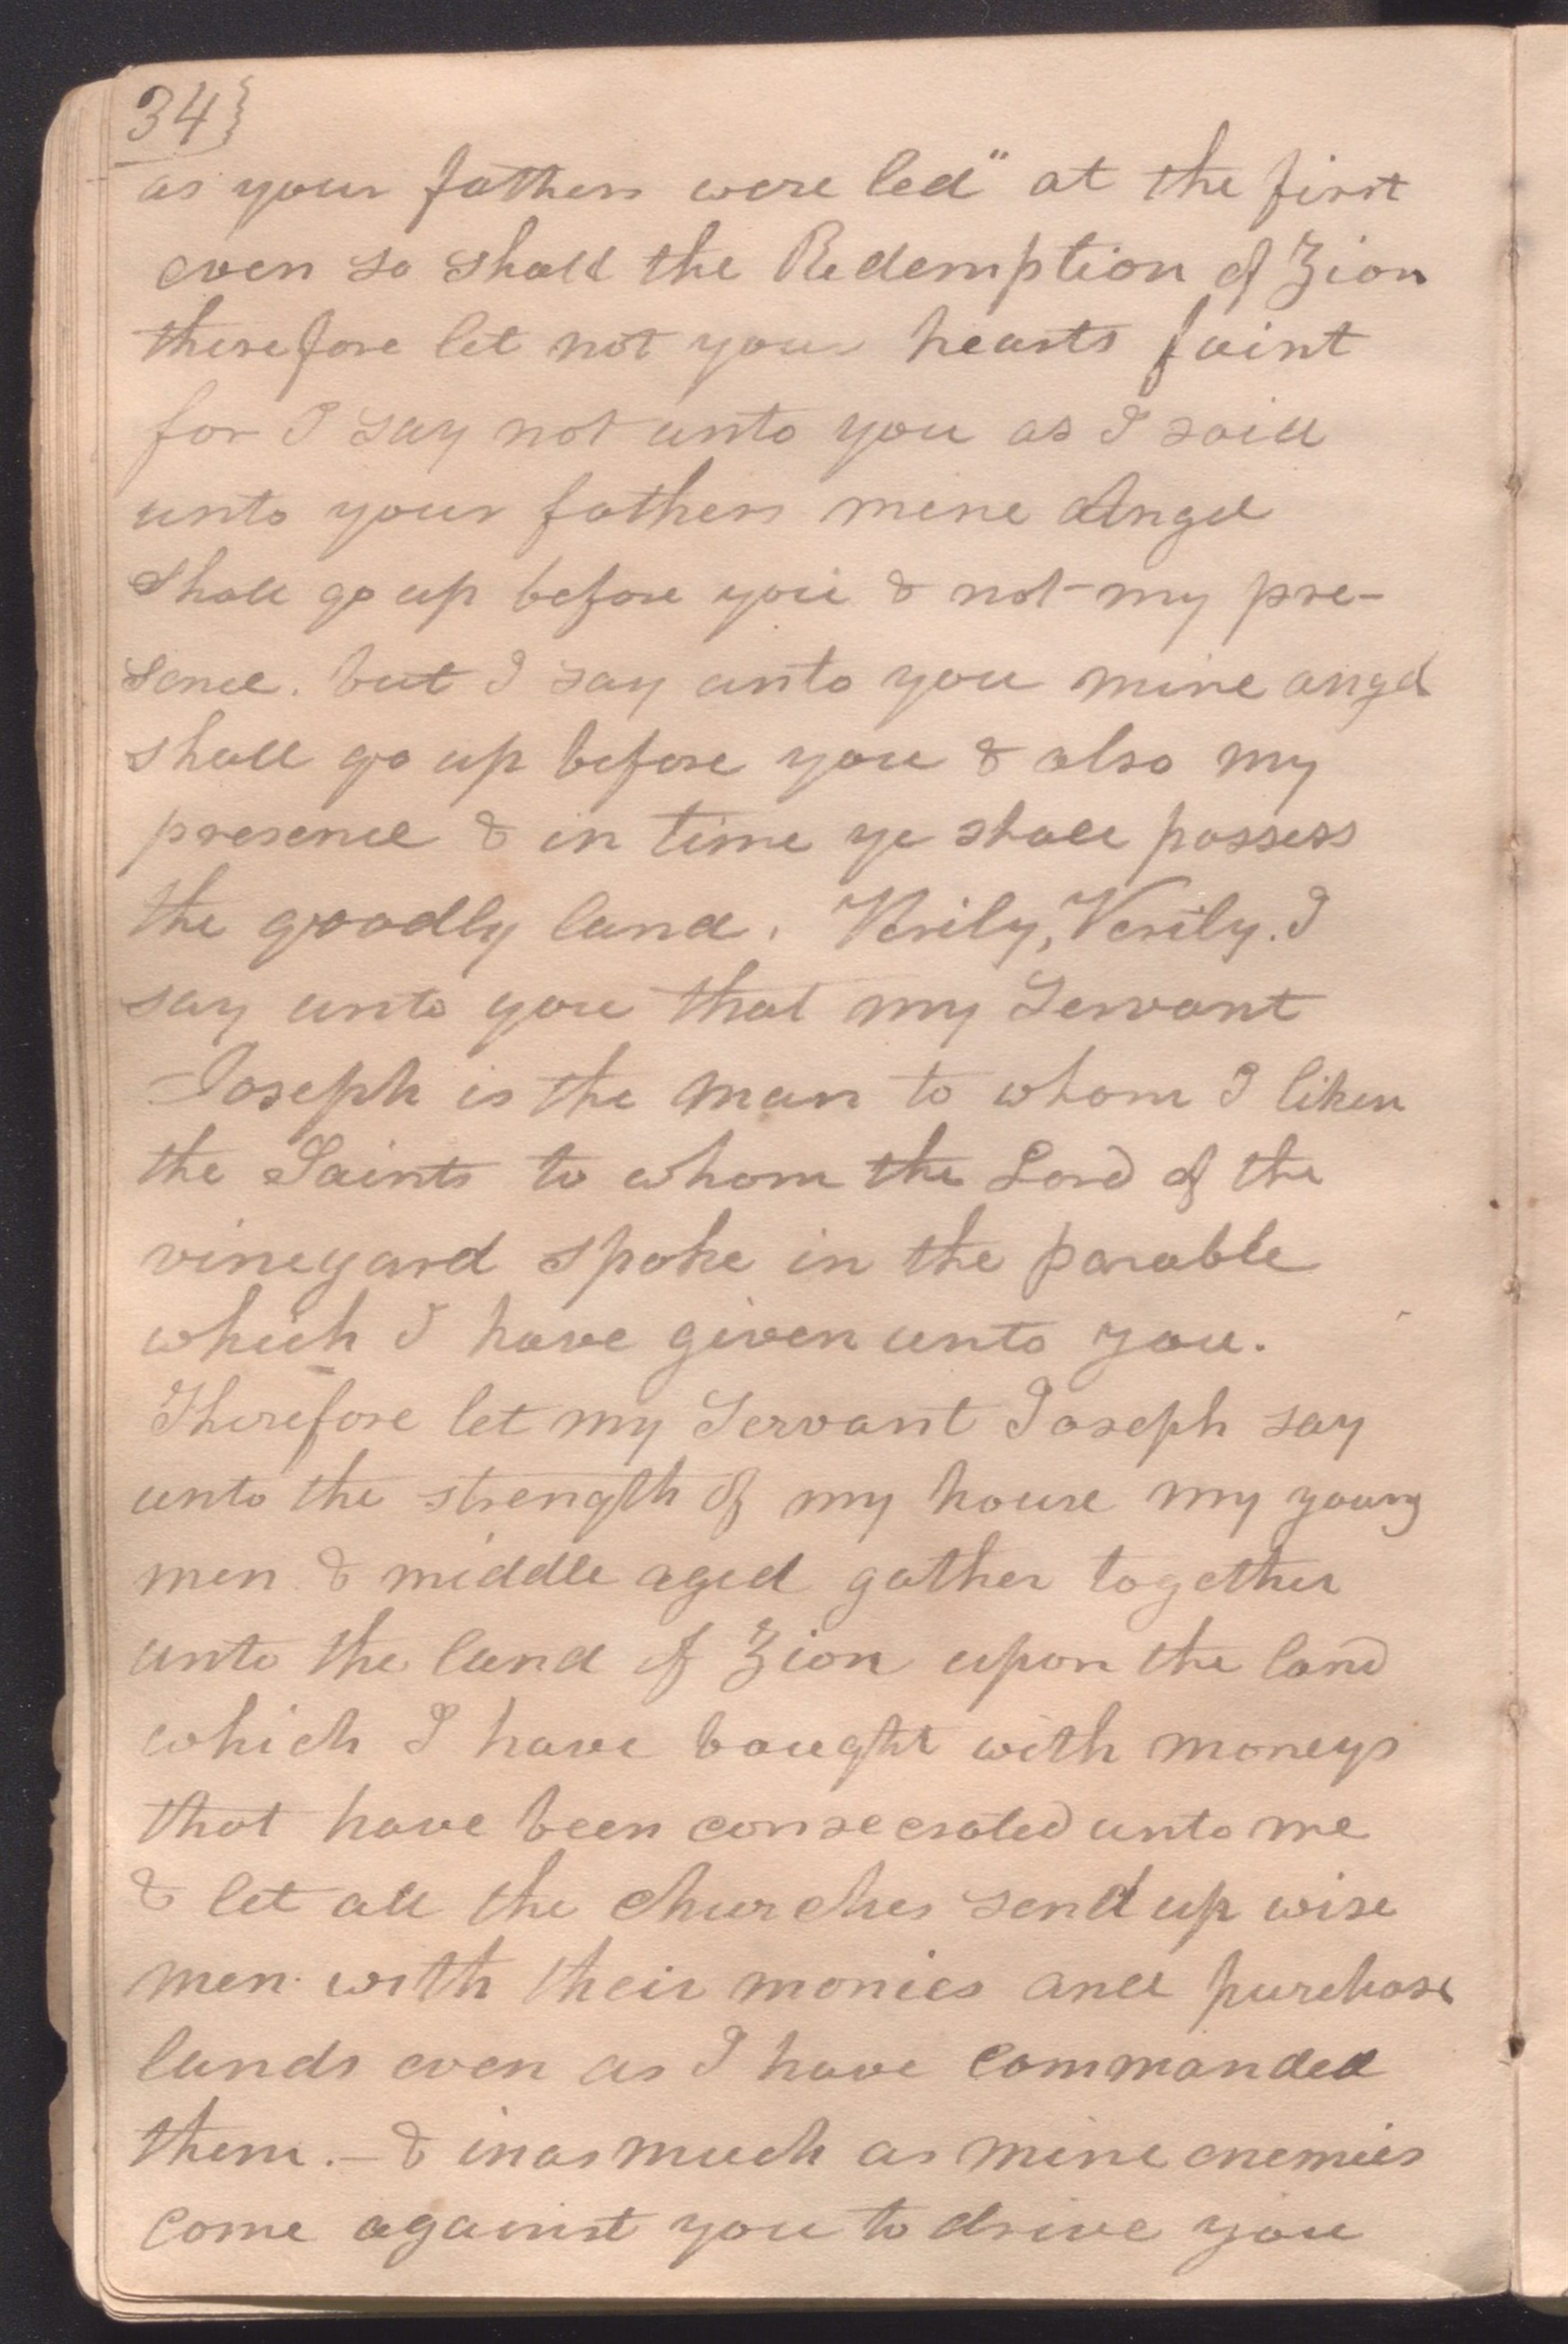 34}
as your fathers were led" at the first
even so shall the Redemption of Zion
therefore let not your hearts faint
for I say not unto you as I said
unto your fathers mine Angel
shall go up before you & not my pre-
sence. but I say unto you mine angel
shall go up before you & also my
presence & in time ye shall possess
the goodly land. Verily, Verily. I
say unto you that my Servant
Joseph is the man to whom I liken
the Saints to whom the Lord of the
vineyard spoke in the parable
which I have given unto you.
Therefore let my Servant Joseph say
unto the strength of my house my young
men & middle aged gather together
unto the land of Zion upon the land
which I have bought with moneys
that have been consecrated unto me
& let all the churches send up wise
men with their monies and purchase
lands even as I have commanded
them. - & inasmuch as mine enemies
come against you to drive you